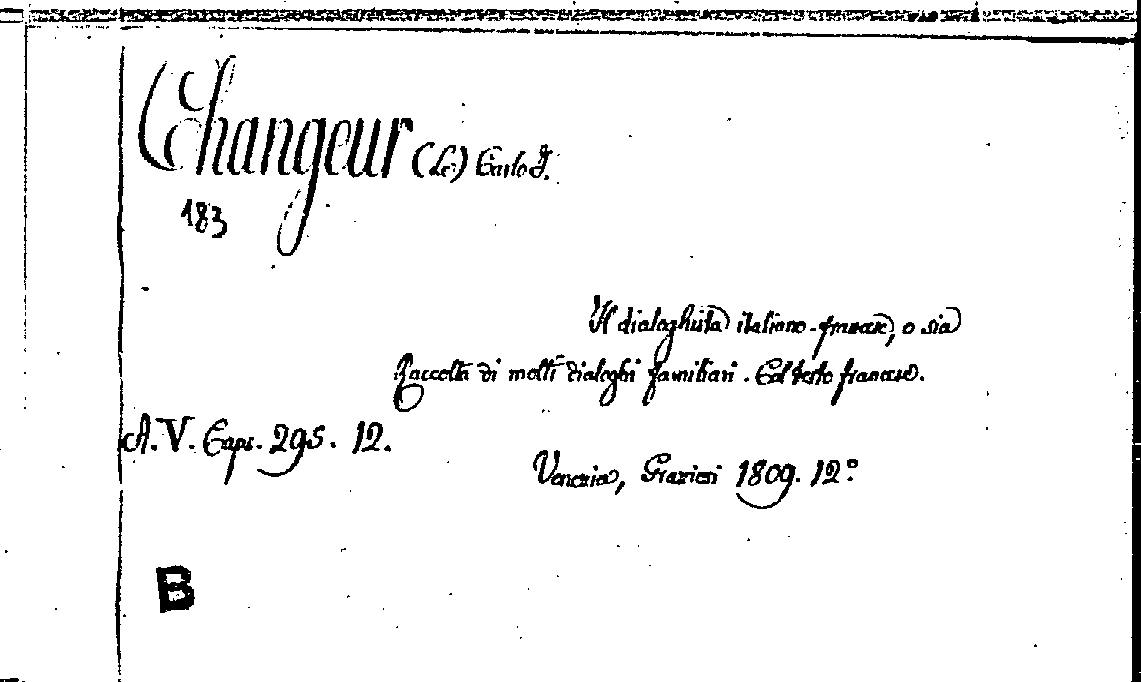 Changeur (Le) Carlo G.
183
Il dialoghista italiano-francese, o sia
Raccolta di molti dialoghi familiari. Col testo francese.
A. V. Caps. 295. 12.
Venezia, Graziosi 1809. 12°
B